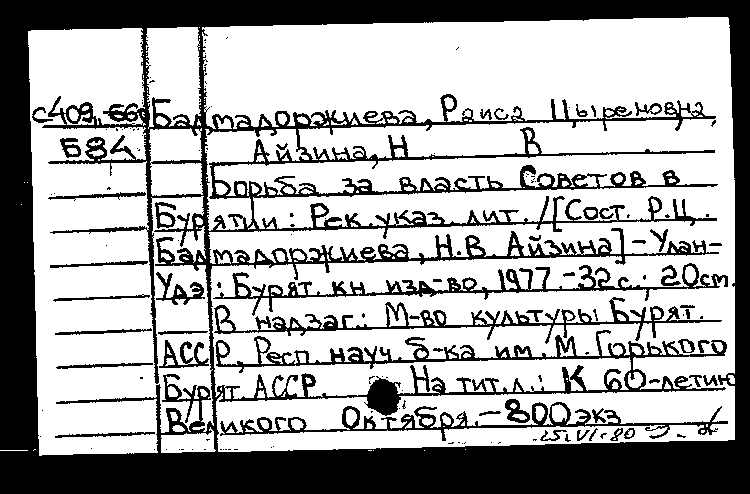 с409, Бадмадоржиева, Раиса Цыреновна,
Б84 Айзина, Н В .
Борьба за власть Советов в
Бурятии: Рек. указ. лит. /[Сост. Р.Ц.
Бадмадоржиева, Н.В. Айзина] - Улан-
Удэ: Бурят. кн. изд-во, 1977. - 32 с.; 20 см.
В надзаг.: М-во культуры Бурят.
АССР, Респ. науч. б-ка им. М. Горького
Бурят. АССР. На тит. л.: К 60-летию
Великого Октября. - 800 экз